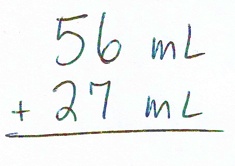 56 mL
+ 27 mL